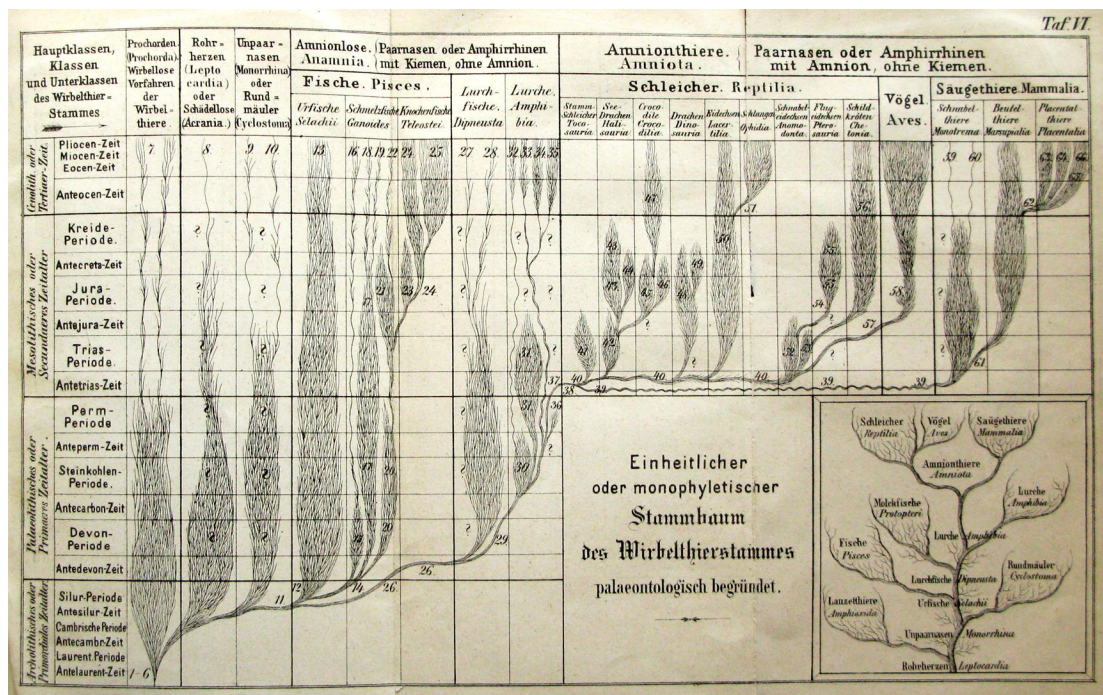 Taf. VI.
Hauptklassen,
Klassen
und Unterklassen
des Wirbelthier=
Stammes
Prochorden.
(Prochorda)
Wirbellose
Vorfahren
der
Wirbel=
thiere.
Rohr=
herzen
(Lepto
cardia)
oder
Schädellose
(Acrania.)
Unpaar=
nasen
(Monorrhina)
oder
Rund=
mäuler
(Cyclostoma)
Amnionlose. Paarnasen oder Amphirrhinen
Anamnia. mit Kiemen, ohne Amnion.
Fische. Pisces.
Urfische
Selachii.
Schmelzfische
Ganoides
Knochenfische
Teleostei.
Lurch=
fische.
Dipneusta
Lurche.
Amphi=
bia.
Amnionthiere. Paarnasen oder Amphirrhinen
Amniota. mit Amnion, ohne Kiemen.
Schleicher. Reptilia.
Stamm=
Schleicher
Toco=
sauria.
See=
Drachen
Hali=
sauria
Croco
dile
Croco=
dilia.
Drachen
Dino=
sauria
Eidechsen
Lacer=
tilia
Schlangen
Ophidia
Schnabel=
eidechsen
Anomo=
donta.
Flug=
eidechsen
Ptero=
sauria
Schild=
kröten
Che=
lonia.
Vögel.
Aves.
Säugethiere. Mammalia.
Schnabel=
thiere
Monotrema
Beutel=
thiere
Marsupialia
Placental
thiere
Placentalia
Cenolith. oder
Tertiaer-Zeit.
Pliocen-Zeit
Miocen-Zeit
Eocen-Zeit
Anteocen-Zeit
7. 8. 9 10. 13. 16. 18. 19. 22 24. 25. 27 28. 32. 33. 34. 35. 59. 60. 63. 64. 66.
65.
47.
56.
57.
62.
Mesolithisches oder
Secundaeres Zeitalter
Kreide=
Periode.
Antecreta-Zeit
Jura=
Periode.
Antejura-Zeit
Trias=
Periode.
Antetrias-Zeit
? ? ? ? ?
48. 50. 55.
44. 46. 49.
21. 23. 24. 43. 45. 48. 53. 58.
17. 54.
57.
31. 41. 42. 52. 53. 61.
37. 40. 40. 40. 39. 39.
38. 39.
Palaeolithisches oder
Primaeres Zeitalter.
Perm=
Periode
Anteperm-Zeit
Steinkohlen-
Periode.
Antecarbon-Zeit
Devon=
Periode
Antedevon-Zeit
31. 36
17. 20. 30.
20
15. 29.
26.
Archolithisches oder
Primordiales Zeitalter.
Silur-Periode
Antesilur-Zeit
Cambrische Periode
Antecambr-Zeit
Laurent. Periode
Antelaurent-Zeit
11. 12 14. 26.
1-6
Einheitlicher
oder monophyletischer
Stammbaum
des Wirbelthierstammes
palaeontologisch begründet.
Schleicher
Reptilia
Vögel
Aves
Säugethiere
Mammalia
Amnionthiere
Amniota
Lurche
Amphibia
Molchfische
Protopteri
Lurche Amphibia
Fische
Pisces
Rundmäuler
Cyclostoma
Lurchfische Dipneusta
Lanzetthiere
Amphioxida
Urfische Selachii
Unpaarnasen Monorrhina
Rohrherzen Leptocardia